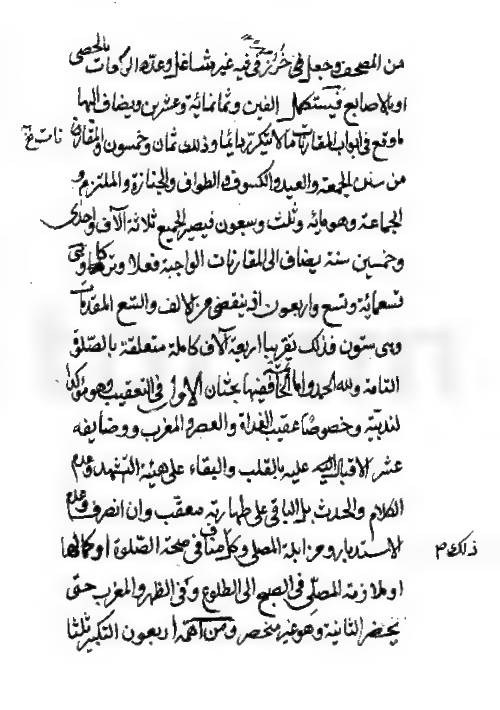 من المصحف وجعل في خرز في فيه غير مشاغل وعد الركعات بالحصى
او بالاصابع فيستكمل الفين وثمانمائة وعشرين ويضاف اليها
ما وقع في ابواب المقارنات مما لا يتكرر دايما وذلك ثمان وخمسون والمقارن
من سنن الجمعة والعيد والكسوف والطواف والجنازة والملتزم و
الجماعة وهو مائة وثلث وسبعون فيصير الجميع ثلاثة آلاف واحدى
وخمسين سنة يضاف الى المقارنات الواجبة فعلا وتركا وهي
تسعمائة وتسع واربعون اذ ينقص من الالف والتسع المقدمات
وهى ستون فذلك تقريبا اربعة آلاف كاملة متعلقة بالصلوة
التامة ولله الحمد واما الخاتمة ففيها بحثان الاول في التعقيب وهو مؤكد
الندبية وخصوصا عقيب الغداة والعصر والمغرب ووظايفه
عشر الاقبال عليه بالقلب والبقاء على هيئة التشهد وعدم
الكلام والحدث بل الباقي على طهارته معقب وان انصرف وعدم
الاستدبار ومزايلة المصلى وكل مناف صحة الصلوة او كمالها
ذلك م
او ملازمة المصلى في الصبح الى الطلوع وفى الظهر والمغرب حتى
يحضر الثانية وهو غير منحصر ومن اهمه اربعون التكبير ثلثا